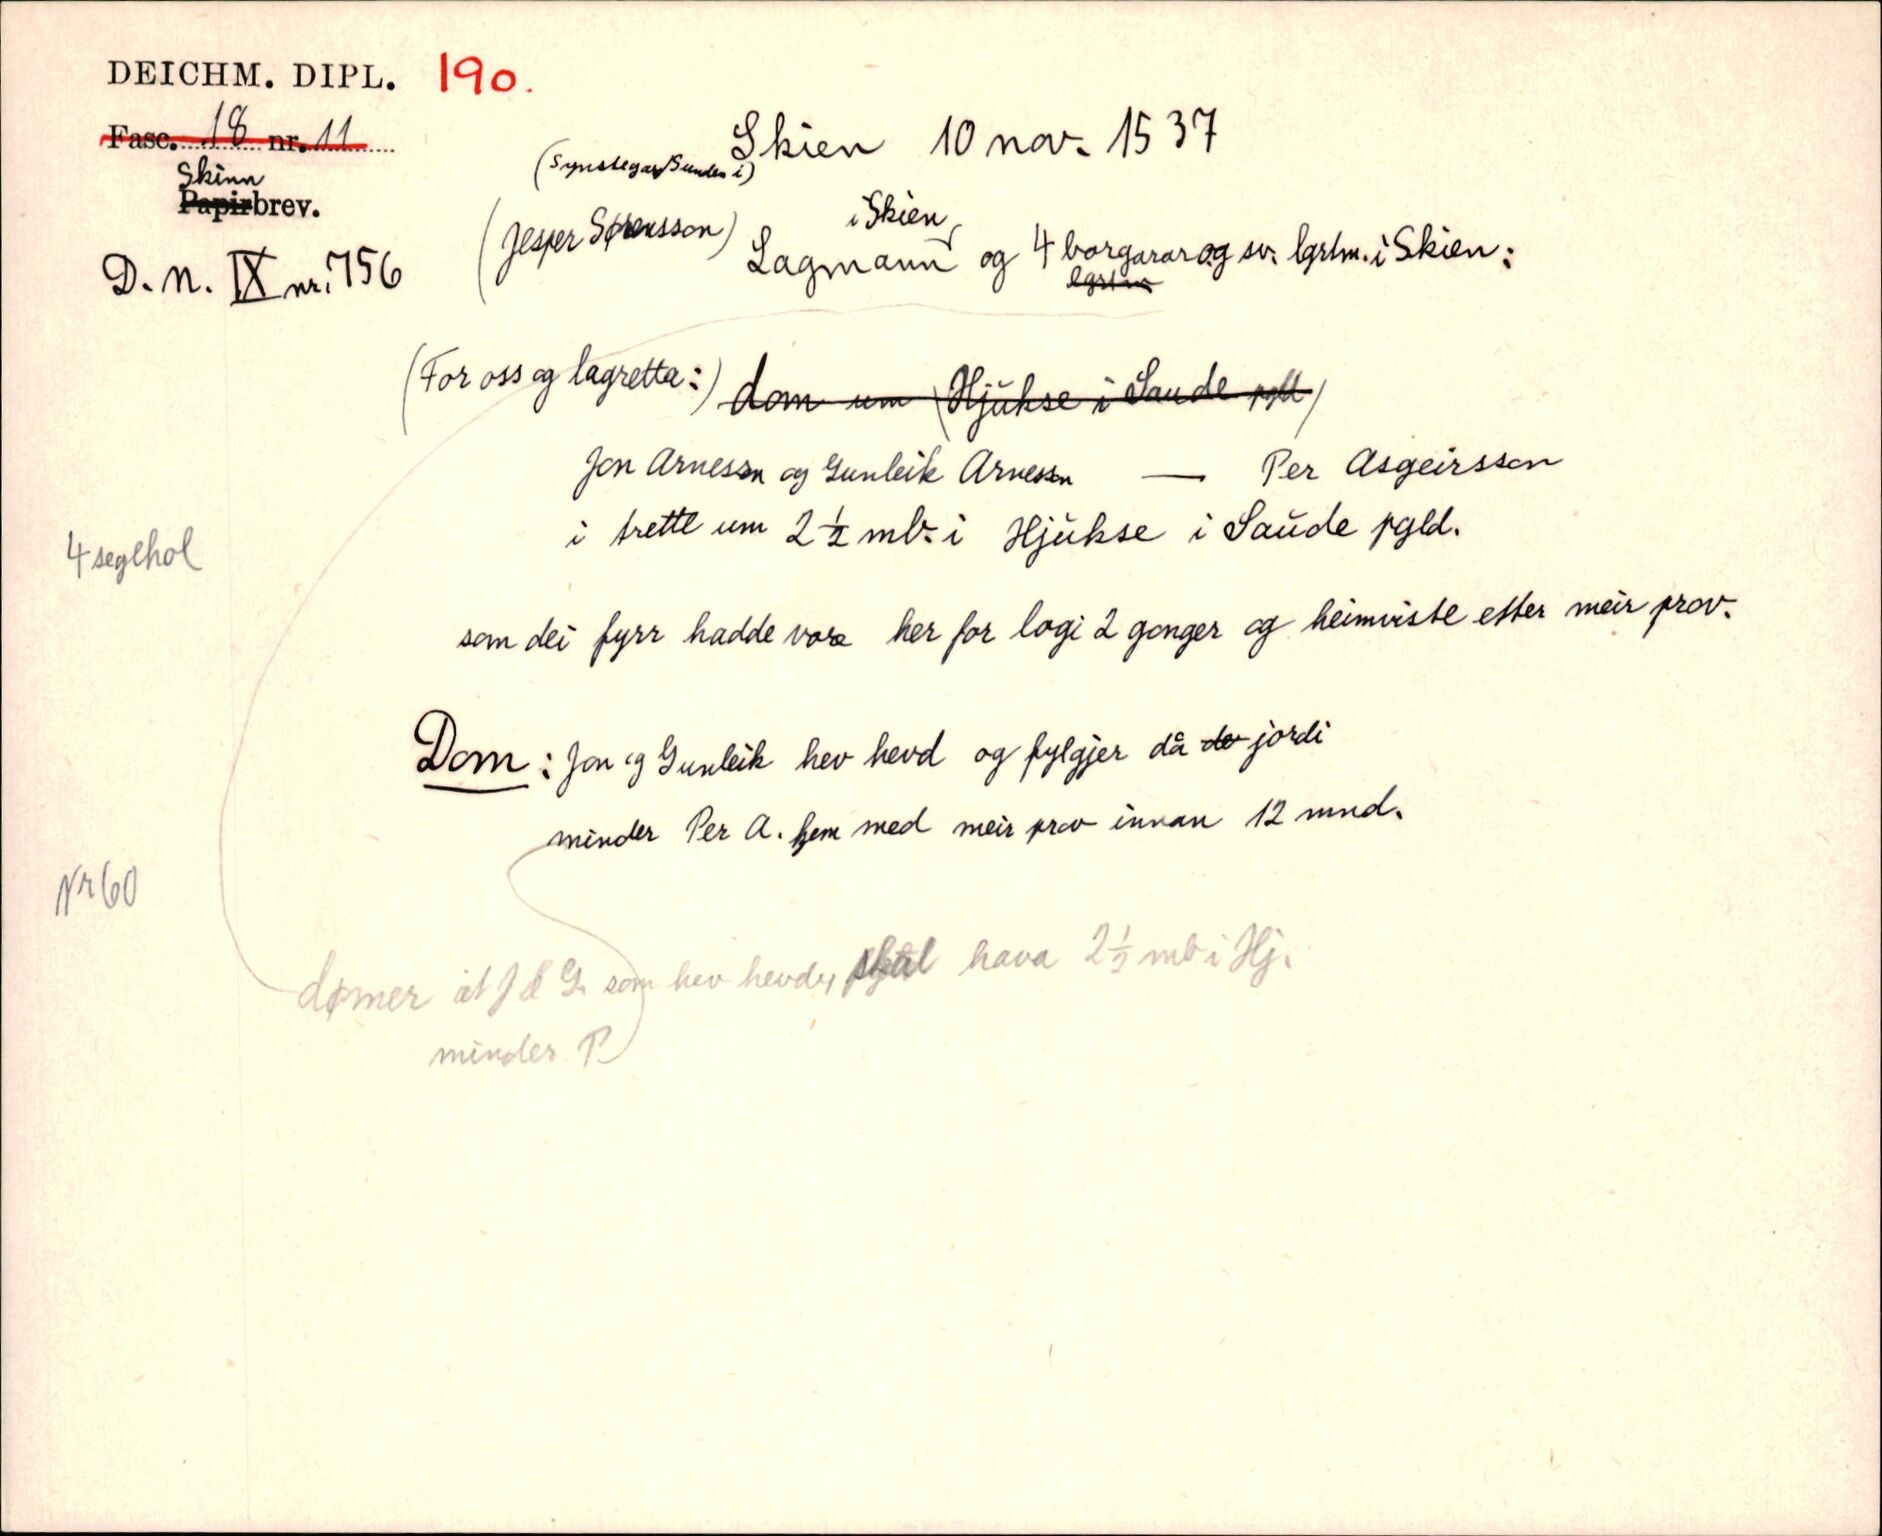 DEICHM. DIPL. 190.
Fasc. 18 nr. 11
Skinn
Papirbrev.
D. N. IX nr. 756
Skien 10 nov. 1537
(Synstegard Sunden i)
(Jesper Sørensson) Lagmann i Skien og 4 borgarar og sv. lgrtm. i Skien:
lgrtm
(For oss og lagretta:) dom um (Hjukse i Saude pgld)
Jon Arnesson og Gunleik Arnesson — Per Asgeirsson
i trette um 2 1/2 mb. i Hjukse i Saude pgld.
4 seglhol
som dei fyrr hadde vore her for logi 2 gonger og heimviste etter meir prov.
Dom: Jon og Gunleik hev hevd og fylgjer då de jordi
minder Per A. kjem med meir prov innan 12 mnd.
Nr 60
dømer at J & G. som hev hevd, skal hava 2 1/2 mb i Hj.
minder P